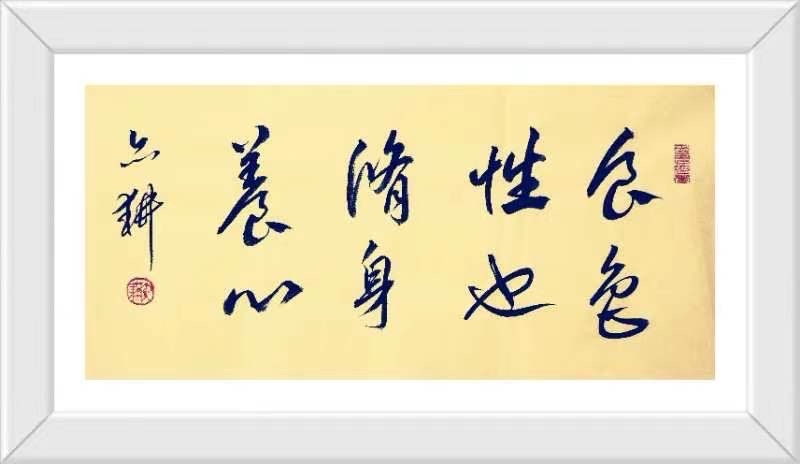 食色
性也
脩身
養心
亦耕